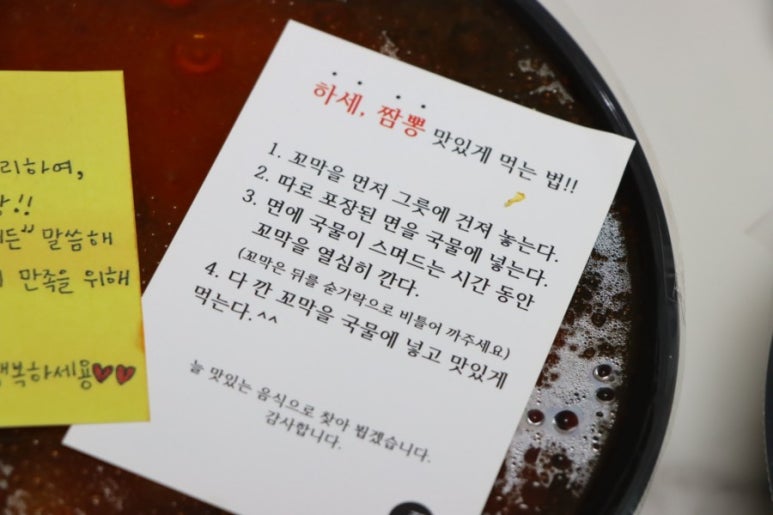 리하여,
!!
든" 말씀해
만족을 위해
복하세용♥♥
하세, 짬뽕 맛있게 먹는 법!!
1. 꼬막을 먼저 그릇에 건져 놓는다.
2. 따로 포장된 면을 국물에 넣는다.
3. 면에 국물이 스며드는 시간 동안
꼬막을 열심히 깐다.
(꼬막은 뒤를 숟가락으로 비틀어 까주세요)
4. 다 깐 꼬막을 국물에 넣고 맛있게
먹는다.^^
늘 맛있는 음식으로 찾아 뵙겠습니다.
감사합니다.